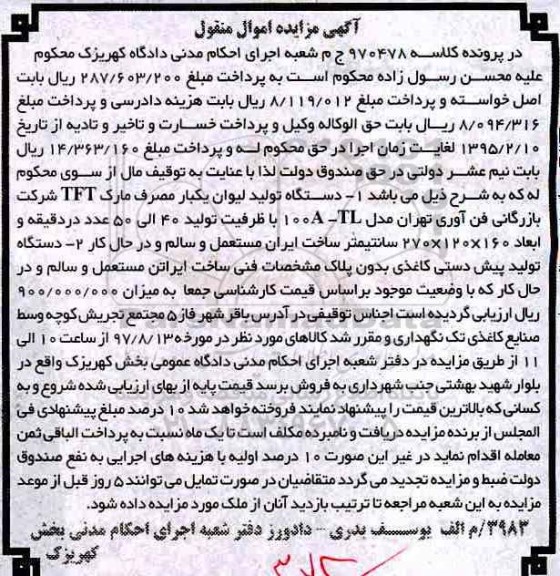 آگهی مزایده اموال منقول
در پرونده کلاسه ۹۷۰۴۷۸ ج م شعبه اجرای احکام مدنی دادگاه کهریزک محکوم
علیه محسن رسول زاده محکوم است به پرداخت مبلغ ۲۸۷/۶۰۳/۲۰۰ ریال بابت
اصل خواسته و پرداخت مبلغ ۸/۱۱۹/۰۱۲ ریال بابت هزینه دادرسی و پرداخت مبلغ
۸/۰۹۴/۳۱۶ ریال بابت حق الوکاله وکیل و پرداخت خسارت و تاخیر و تادیه از تاریخ
۱۳۹۵/۲/۱۰ لغایت زمان اجرا در حق محکوم له و پرداخت مبلغ ۱۴/۳۶۳/۱۶۰ ریال
بابت نیم عشر دولتی در حق صندوق دولت لذا با عنایت به توقیف مال از سوی محکوم
له که به شرح ذیل می باشد ۱- دستگاه تولید لیوان یکبار مصرف مارک TFT شرکت
بازرگانی فن آوری تهران مدل ۱۰۰A -TL با ظرفیت تولید ۴۰ الی ۵۰ عدد دردقیقه و
ابعاد ۲۷۰×۱۲۰×۱۶۰ سانتیمتر ساخت ایران مستعمل و سالم و در حال کار ۲- دستگاه
تولید پیش دستی کاغذی بدون پلاک مشخصات فنی ساخت ایراتن مستعمل و سالم و در
حال کار که با وضعیت موجود براساس قیمت کارشناسی جمعا به میزان ۹۰۰/۰۰۰/۰۰۰
ریال ارزیابی گردیده است اجناس توقیفی در آدرس باقر شهر فاز ۵ مجتمع تجریش کوچه وسط
صنایع کاغذی تک نگهداری و مقرر شد کالاهای مورد نظر در مورخه ۹۷/۸/۱۳ از ساعت ۱۰ الی
۱۱ از طریق مزایده در دفتر شعبه اجرای احکام مدنی دادگاه عمومی بخش کهریزک واقع در
بلوار شهید بهشتی جنب شهرداری به فروش برسد قیمت پایه از بهای ارزیابی شده شروع و به
کسانی که بالاترین قیمت را پیشنهاد نمایند فروخته خواهد شد ۱۰ درصد مبلغ پیشنهادی فی
المجلس از برنده مزایده دریافت و نامبرده مکلف است تا یک ماه نسبت به پرداخت الباقی ثمن
معامله اقدام نماید در غیر این صورت ۱۰ درصد اولیه با هزینه های اجرایی به نفع صندوق
دولت ضبط و مزایده تجدید می گردد متقاضیان در صورت تمایل می توانند ۵ روز قبل از موعد
مزایده به این شعبه مراجعه تا ترتیب بازدید آنان از ملک مورد مزایده داده شود.
۳۹۸۳/م الف یوسف بدری - دادورز دفتر شعبه اجرای احکام مدنی بخش
کهریزک